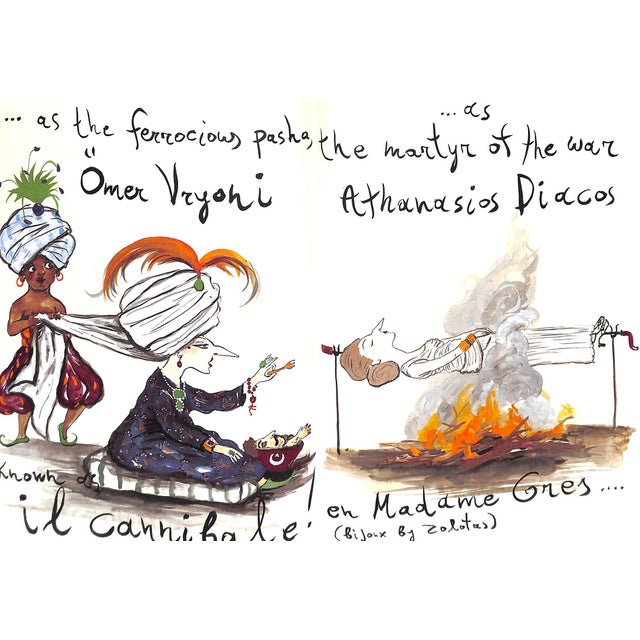 ... as the ferrocious pasha,
Ömer Vryoni
Known as
il cannibale!
... as
the martyr of the war
Athanasios Diacos
en Madame Gres ....
(Bijoux By Zolotas)